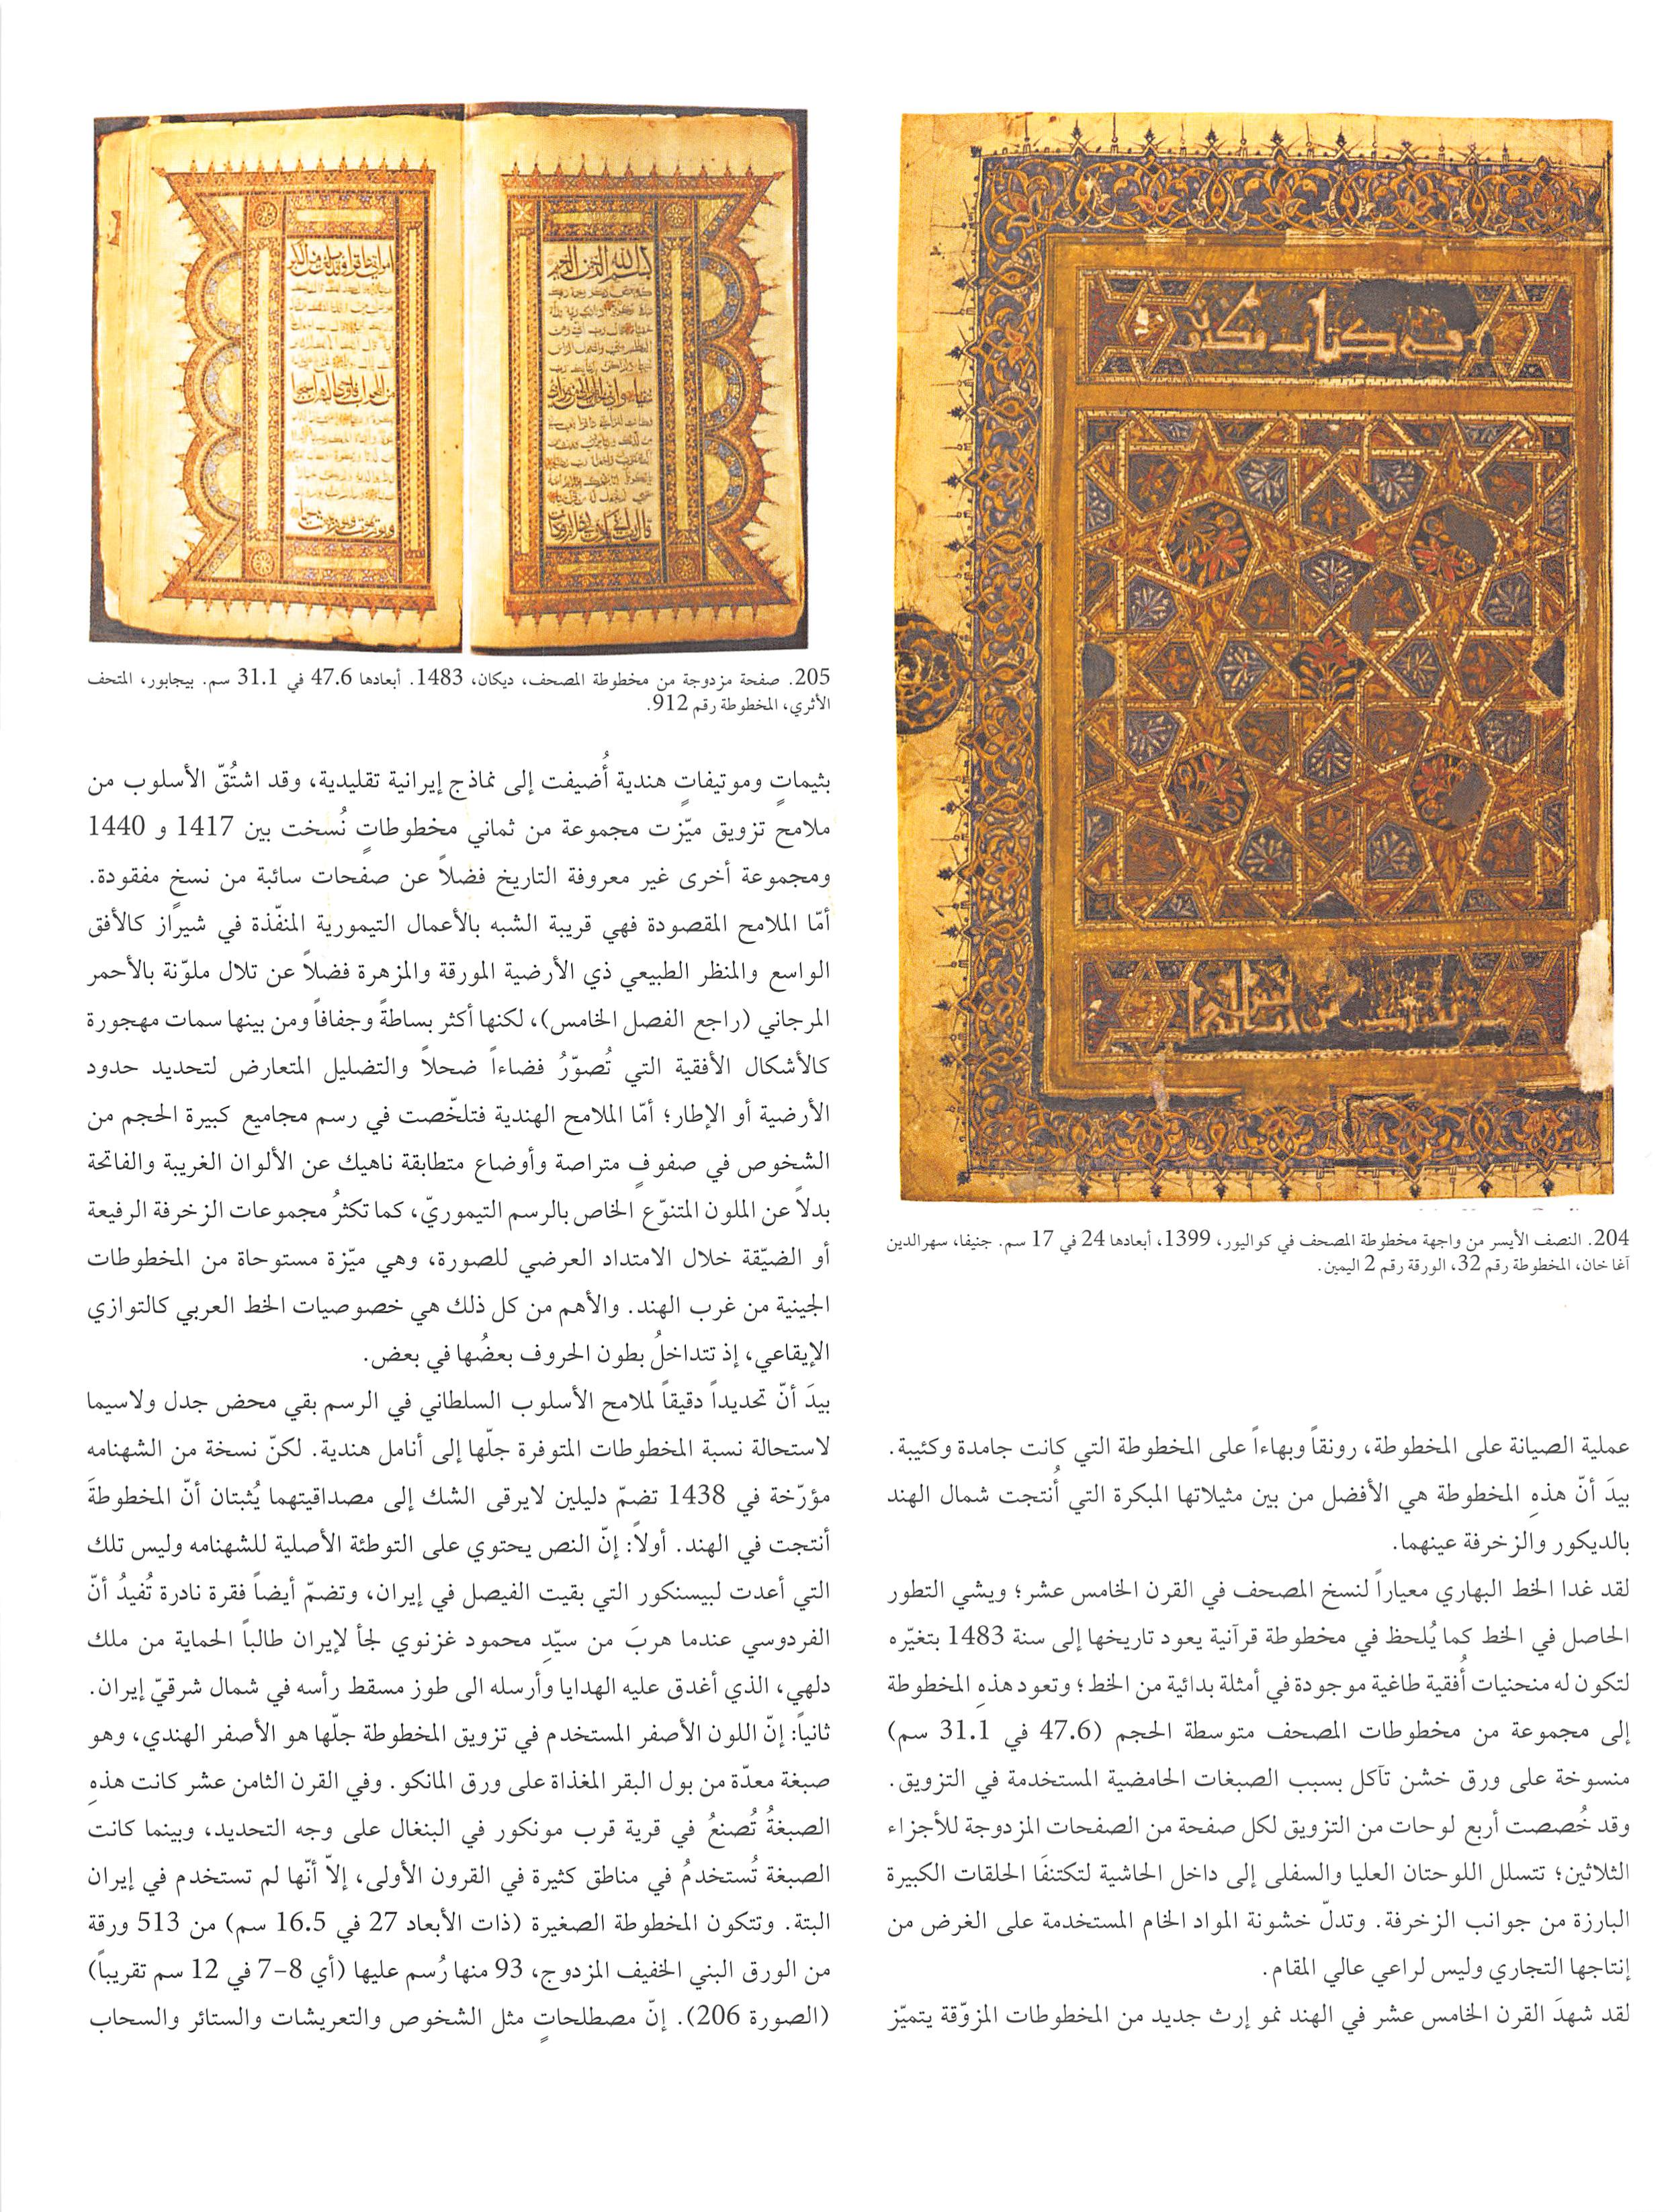 204. النصف الأيسر من واجهة مخطوطة المصحف في كواليور، 1399، أبعادها 24 في 17 سم. جنيفا، سهرالدين
آغا خان، المخطوطة رقم 32، الورقة رقم 2 اليمين.
عملية الصيانة على المخطوطة، رونقاً وبهاءاً على المخطوطة التي كانت جامدة وكئيبة.
بيدَ أنّ هذهِ المخطوطة هي الأفضل من بين مثيلاتها المبكرة التي أُنتجت شمال الهند
بالديكور والزخرفة عينهما.
لقد غدا الخط البهاري معياراً لنسخ المصحف في القرن الخامس عشر؛ ويشي التطور
الحاصل في الخط كما يُلحظ في مخطوطة قرآنية يعود تاريخها إلى سنة 1483 بتغيّره
لتكون له منحنيات أُفقية طاغية موجودة في أمثلة بدائية من الخط؛ وتعود هذهِ المخطوطة
إلى مجموعة من مخطوطات المصحف متوسطة الحجم (47.6 في 31.1 سم)
منسوخة على ورق خشن تآكل بسبب الصبغات الحامضية المستخدمة في التزويق.
وقد خُصصت أربع لوحات من التزويق لكل صفحة من الصفحات المزدوجة للأجزاء
الثلاثين؛ تتسلل اللوحتان العليا والسفلى إلى داخل الحاشية لتكتنفَا الحلقات الكبيرة
البارزة من جوانب الزخرفة. وتدلّ خشونة المواد الخام المستخدمة على الغرض من
إنتاجها التجاري وليس لراعي عالي المقام.
لقد شهدَ القرن الخامس عشر في الهند نمو إرث جديد من المخطوطات المزوّقة يتميّز
205. صفحة مزدوجة من مخطوطة المصحف، ديكان، 1483. أبعادها 47.6 في 31.1 سم. بيجابور، المتحف
الأثري، المخطوطة رقم 912.
بثيماتٍ وموتيفاتٍ هندية أُضيفت إلى نماذج إيرانية تقليدية، وقد اشتُقّ الأسلوب من
ملامح تزويق ميّزت مجموعة من ثماني مخطوطاتٍ نُسخت بين 1417 و 1440
ومجموعة أخرى غير معروفة التاريخ فضلاً عن صفحات سائبة من نسخٍ مفقودة.
أمّا الملامح المقصودة فهي قريبة الشبه بالأعمال التيمورية المنفّذة في شيراز كالأفق
الواسع والمنظر الطبيعي ذي الأرضية المورقة والمزهرة فضلاً عن تلال ملوّنة بالأحمر
المرجاني (راجع الفصل الخامس)، لكنها أكثر بساطةً وجفافاً ومن بينها سمات مهجورة
كالأشكال الأفقية التي تُصوّرُ فضاءاً ضحلاً والتضليل المتعارض لتحديد حدود
الأرضية أو الإطار؛ أمّا الملامح الهندية فتلخّصت في رسم مجاميع كبيرة الحجم من
الشخوص في صفوفٍ متراصة وأوضاع متطابقة ناهيك عن الألوان الغريبة والفاتحة
بدلاً عن الملون المتنوّع الخاص بالرسم التيموريّ، كما تكثرُ مجموعات الزخرفة الرفيعة
أو الضيّقة خلال الامتداد العرضي للصورة، وهي ميّزة مستوحاة من المخطوطات
الجينية من غرب الهند. والأهم من كل ذلك هي خصوصيات الخط العربي كالتوازي
الإيقاعي، إذ تتداخلُ بطون الحروف بعضُها في بعض.
بيدَ أنّ تحديداً دقيقاً لملامح الأسلوب السلطاني في الرسم بقي محض جدل ولاسيما
لاستحالة نسبة المخطوطات المتوفرة جلّها إلى أنامل هندية. لكنّ نسخة من الشهنامه
مؤرّخة في 1438 تضمّ دليلين لايرقى الشك إلى مصداقيتهما يُثبتان أنّ المخطوطةَ
أنتجت في الهند. أولاً: إنّ النص يحتوي على التوطئة الأصلية للشهنامه وليس تلك
التي أعدت لبيسنكور التي بقيت الفيصل في إيران، وتضمّ أيضاً فقرة نادرة تُفيدُ أنّ
الفردوسي عندما هربَ من سيّدِ محمود غزنوي لجأ لإيران طالباً الحماية من ملك
دلهي، الذي أغدق عليه الهدايا وأرسله الى طوز مسقط رأسه في شمال شرقيّ إيران.
ثانياً: إنّ اللون الأصفر المستخدم في تزويق المخطوطة جلّها هو الأصفر الهندي، وهو
صبغة معدّة من بول البقر المغذاة على ورق المانكو. وفي القرن الثامن عشر كانت هذهِ
الصبغةُ تُصنعُ في قرية قرب مونكور في البنغال على وجه التحديد، وبينما كانت
الصبغة تُستخدمُ في مناطق كثيرة في القرون الأولى، إلاّ أنّها لم تستخدم في إيران
البتة. وتتكون المخطوطة الصغيرة (ذات الأبعاد 27 في 16.5 سم) من 513 ورقة
من الورق البني الخفيف المزدوج، 93 منها رُسم عليها (أي 8-7 في 12 سم تقريباً)
(الصورة 206). إنّ مصطلحاتٍ مثل الشخوص والتعريشات والستائر والسحاب